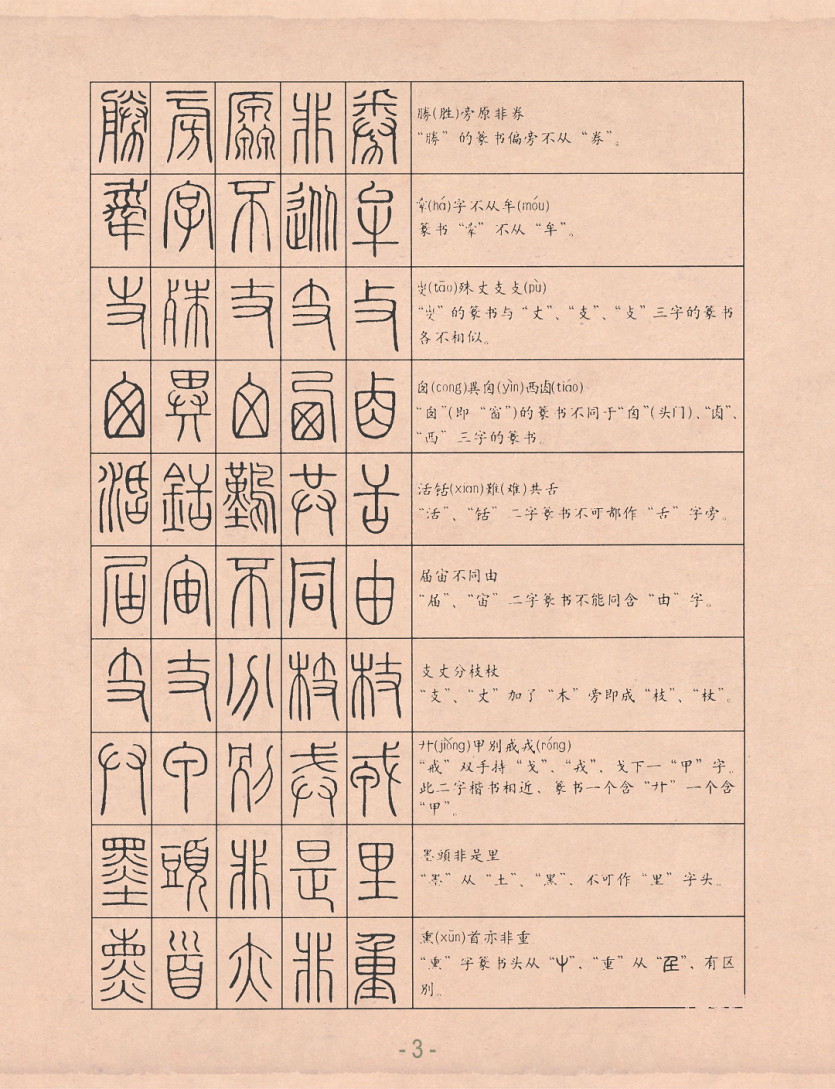 勝旁原非券
勝(胜)旁原非券
“勝”的篆书偏旁不从“券”。
字不从牟
(há)字不从牟(móu)
篆书“ ”不从“牟”。
殊丈支攴
(tāo)殊丈支攴(pù)
“ ”的篆书与“丈”、“支”、“攴”三字的篆书
各不相似。
囱異囟西卤
囱(cong)異囟(yìn)西卤(tiáo)
“囱”(即“窗”)的篆书不同于“囟”(头门)、“卤”、
“西”三字的篆书
活銛難共舌
活铦(xian)難(难)共舌
“活”、“铦”二字篆书不可都作“舌”字旁。
届宙不同由
届宙不同由
“届”、“宙”二字篆书不能同含“由”字。
支丈分枝杖
支丈分枝杖
“支”、“丈”加了“木”旁即成“枝”、“杖”。
廾甲别戒戎
廾(jiǒng)甲别戒戎(róng)
“戒”双手持“戈”、“戎”、戈下一“甲”字。
此二字楷书相近、篆书一个含“廾”一个含
“甲”。
墨頭非是里
墨頭非是里
“墨”从“土”、“黑”、不可作“里”字头。
熏首亦非重
熏(xūn)首亦非重
“熏”字篆书头从“屮”、“重”从“ ”、有区
别。
- 3 -